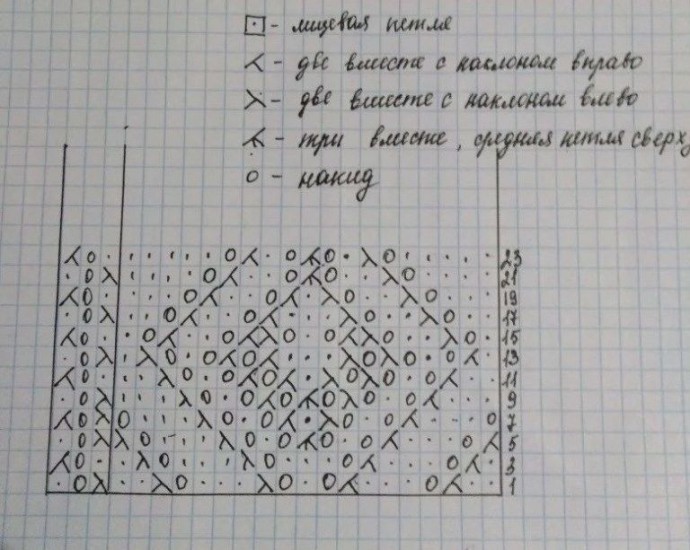 ⊡ - лицевая петля
⋌ - две вместе с наклоном вправо
⋋ - две вместе с наклоном влево
- три вместе, средняя петля сверху
o - накид
23
21
19
17
15
13
11
9
7
5
3
1